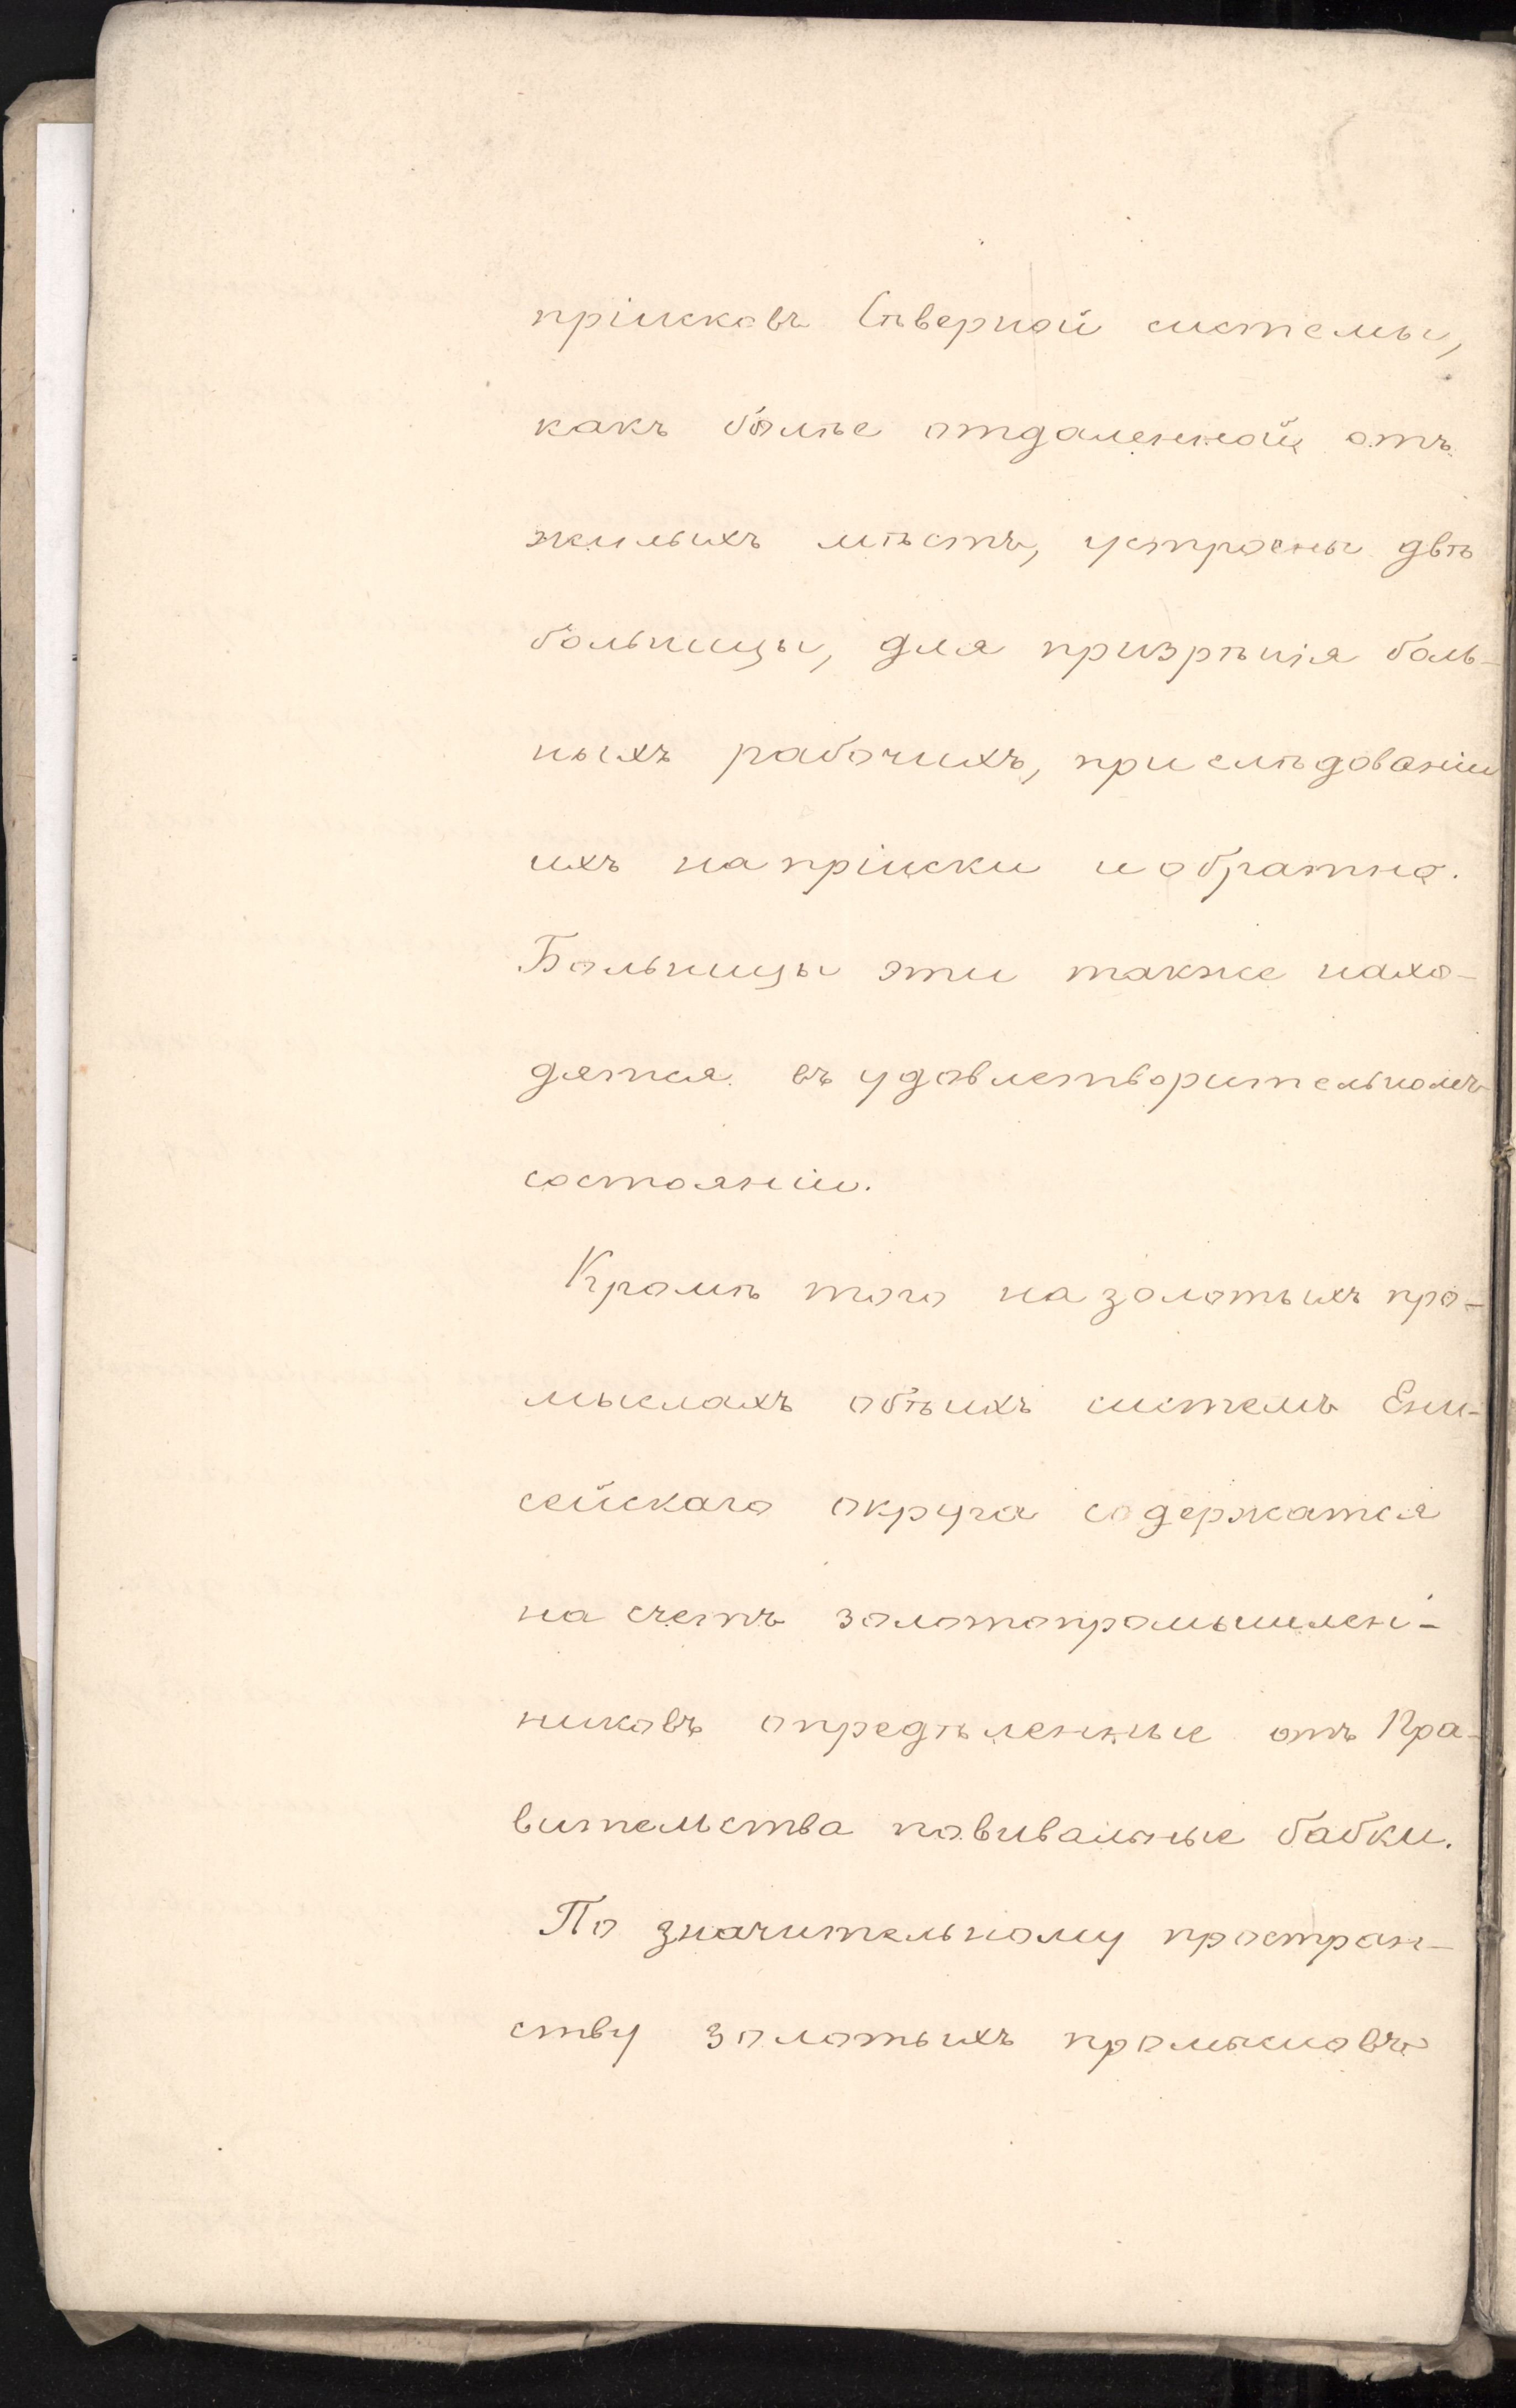 пріисковъ Сѣверной системы,
какъ болѣе отдаленной отъ
жилыхъ мѣстъ, устроены двѣ
больницы, для призрѣнія боль-
ныхъ рабочихъ, при слѣдованіи
ихъ на пріиски и обратно.
Больницы эти также нахо-
дятся въ удовлетворительномъ
состояніи.
Кромѣ того на золотыхъ про-
мыслахъ обѣихъ системъ Ени-
сейскаго округа содержатся
на счетъ золотопромышлен-
никовъ опредѣленные отъ Пра-
вительства повивальные бабки.
По значительному простран-
ству золотыхъ промысловъ